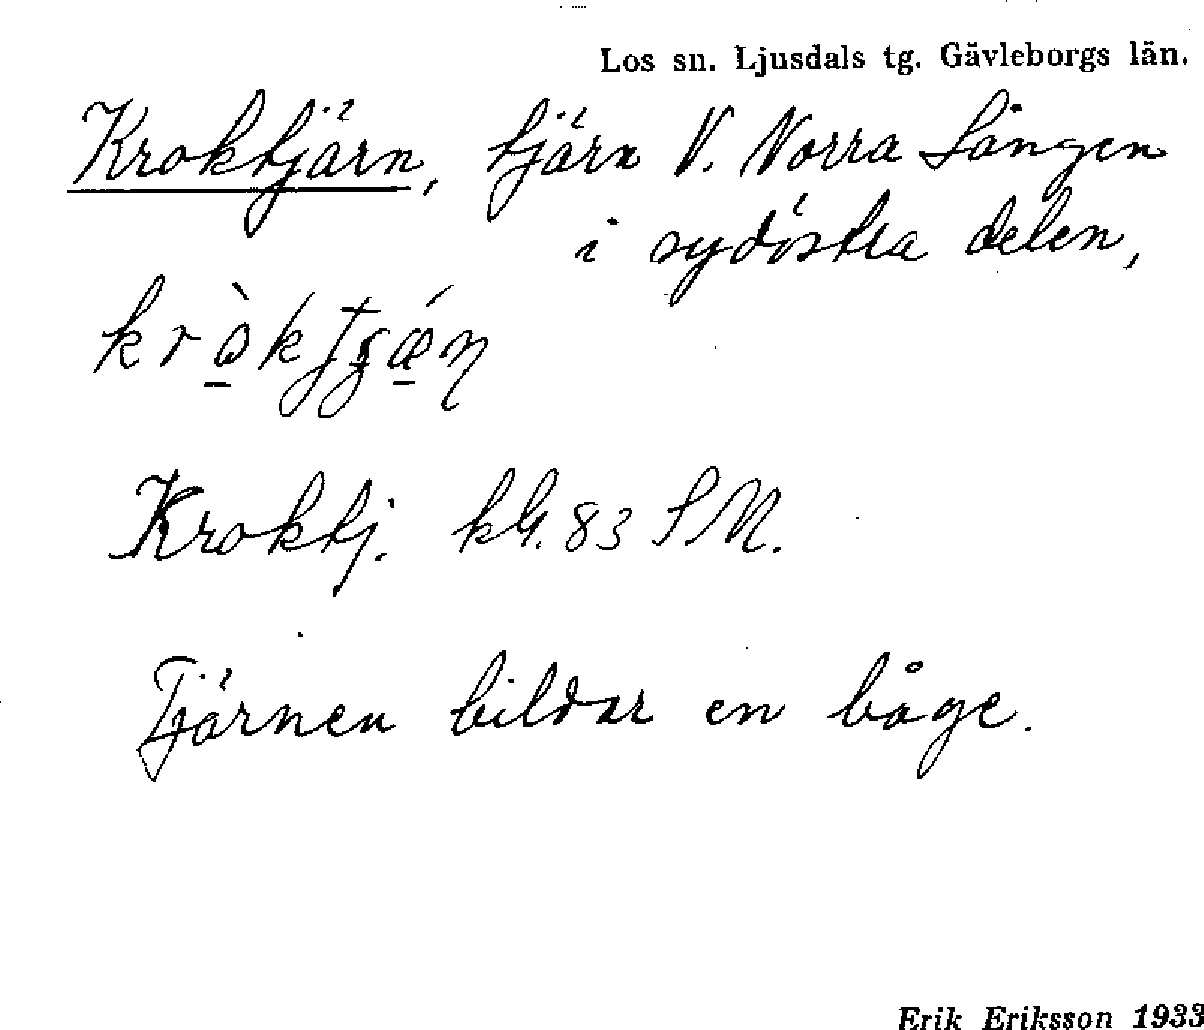 Los sn. Ljusdals tg. Gävleborgs län.
Kroktjärn, tjärn V. Norra Lången
i sydöstra delen,
Kroktj. kbl. 83 SM.
Tjärnen bildar en båge.
Erik Eriksson 1933